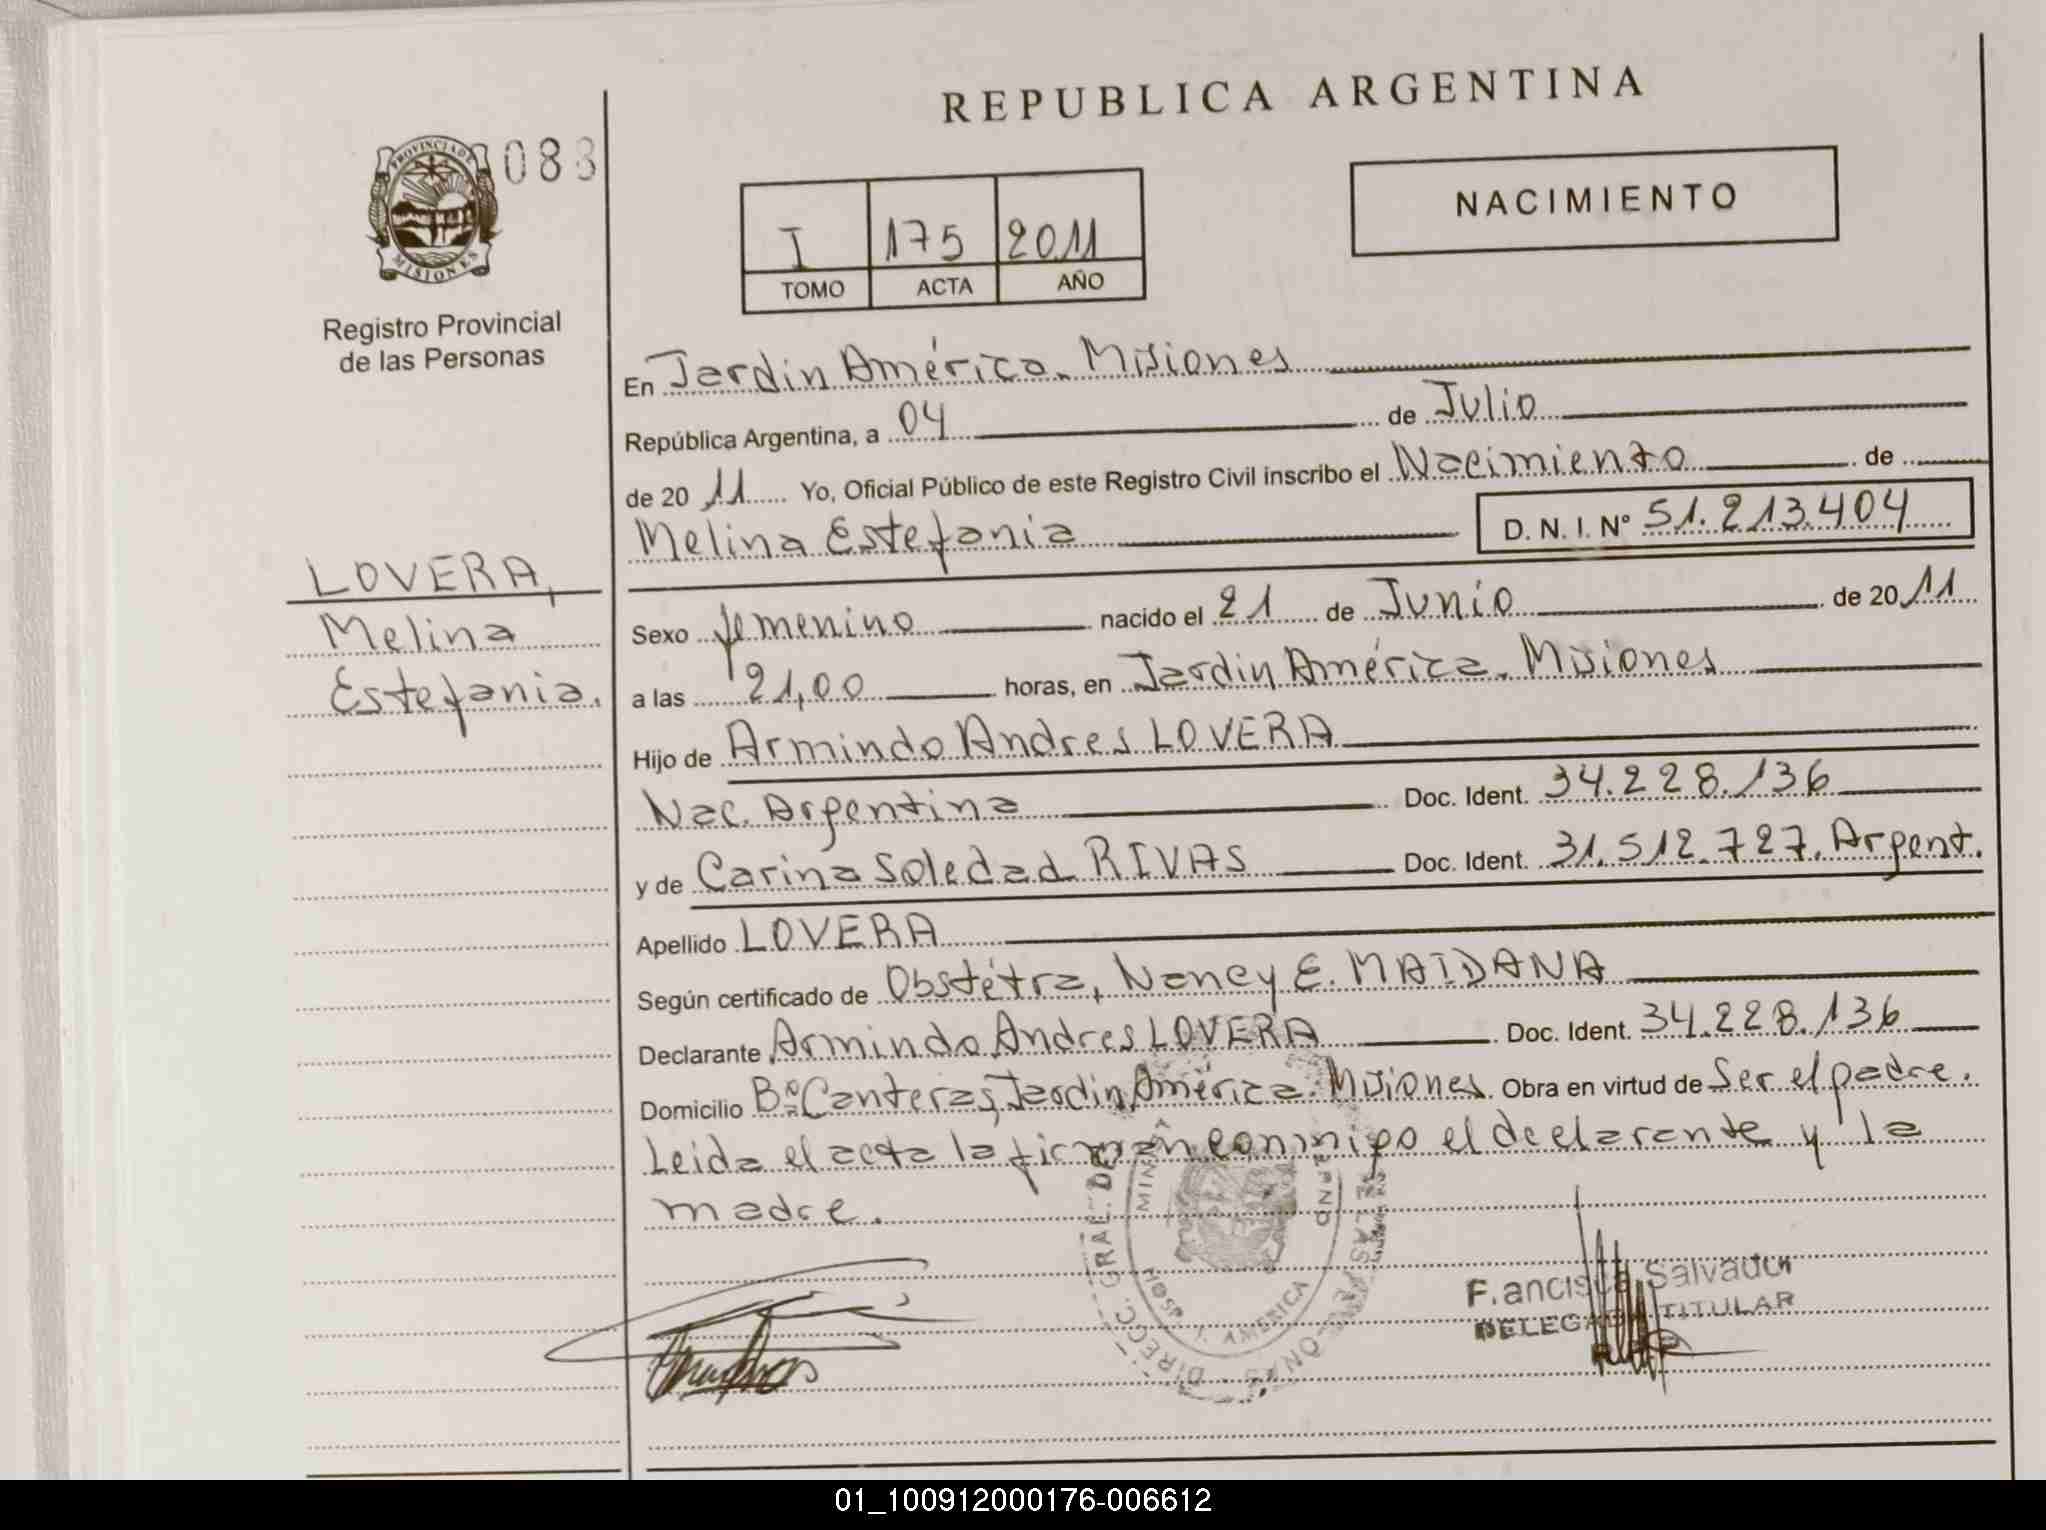 REPUBLICA ARGENTINA
PROVINCIA DE
MISIONES
088
Registro Provincial
de las Personas
NACIMIENTO
I 175 2011
TOMO ACTA AÑO
En Jardin América. Misiones
República Argentina, a 04 de Julio
de 20 11 Yo, Oficial Público de este Registro Civil inscribo el Nacimiento de
Melina Estefania D. N. I. Nº 51.213.404
LOVERA,
Melina
Estefania.
Sexo femenino nacido el 21 de Junio de 20 11
a las 21,00 horas, en Jardin América. Misiones
Hijo de Armindo Andres LOVERA
Nac. Argentina Doc. Ident. 34.228.136
y de Carina Soledad RIVAS Doc. Ident. 31.512.727. Argent.
Apellido LOVERA
Según certificado de Obstétra, Nancy E. MAIDANA
Declarante Armindo Andres LOVERA Doc. Ident. 34.228.136
Domicilio Bº Canteras, Jardin América. Misiones. Obra en virtud de Ser el padre.
Leida el acta la firman conmigo el declarante y la
madre.
DIRECC. GRAL. DE
AMERICA
Salvador
TITULAR
01_100912000176-006612